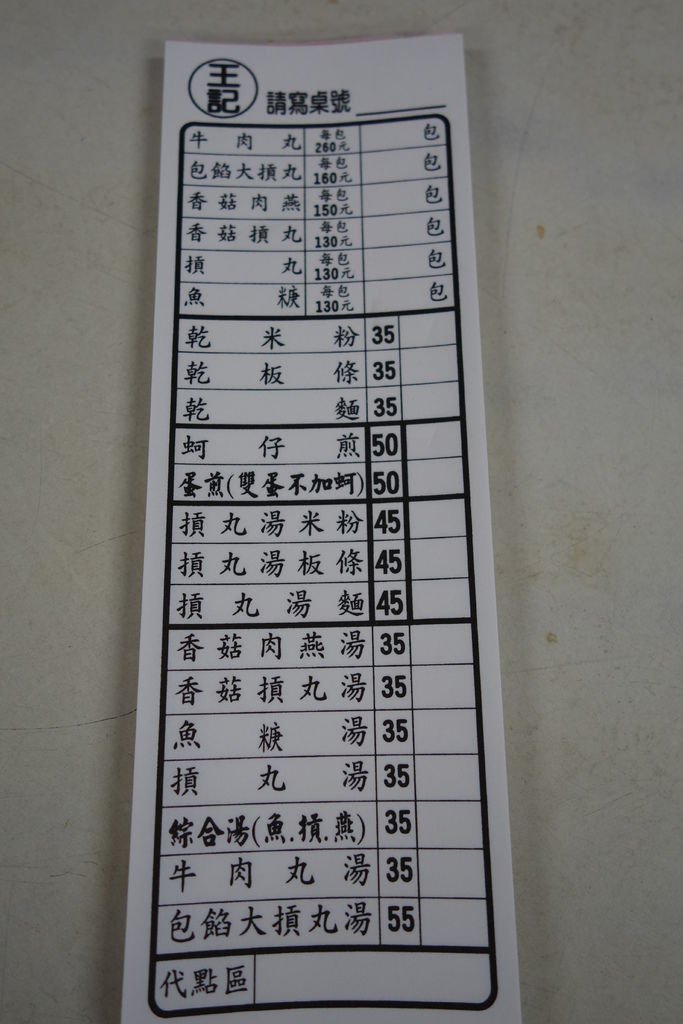 王記 請寫桌號
牛肉丸 每包260元 包
包餡大摃丸 每包160元 包
香菇肉燕 每包150元 包
香菇摃丸 每包130元 包
摃丸 每包130元 包
魚糖 每包130元 包
乾米粉 35
乾板條 35
乾麵 35
蚵仔煎 50
蛋煎(雙蛋不加蚵) 50
摃丸湯米粉 45
摃丸湯板條 45
摃丸湯麵 45
香菇肉燕湯 35
香菇摃丸湯 35
魚糖湯 35
摃丸湯 35
綜合湯(魚.摃.燕) 35
牛肉丸湯 35
包餡大摃丸湯 55
代點區